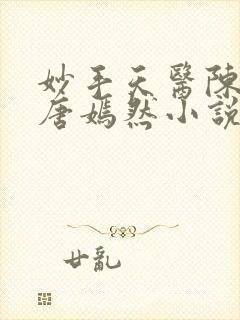 妙手天醫陳
唐嫣然小說
廿亂